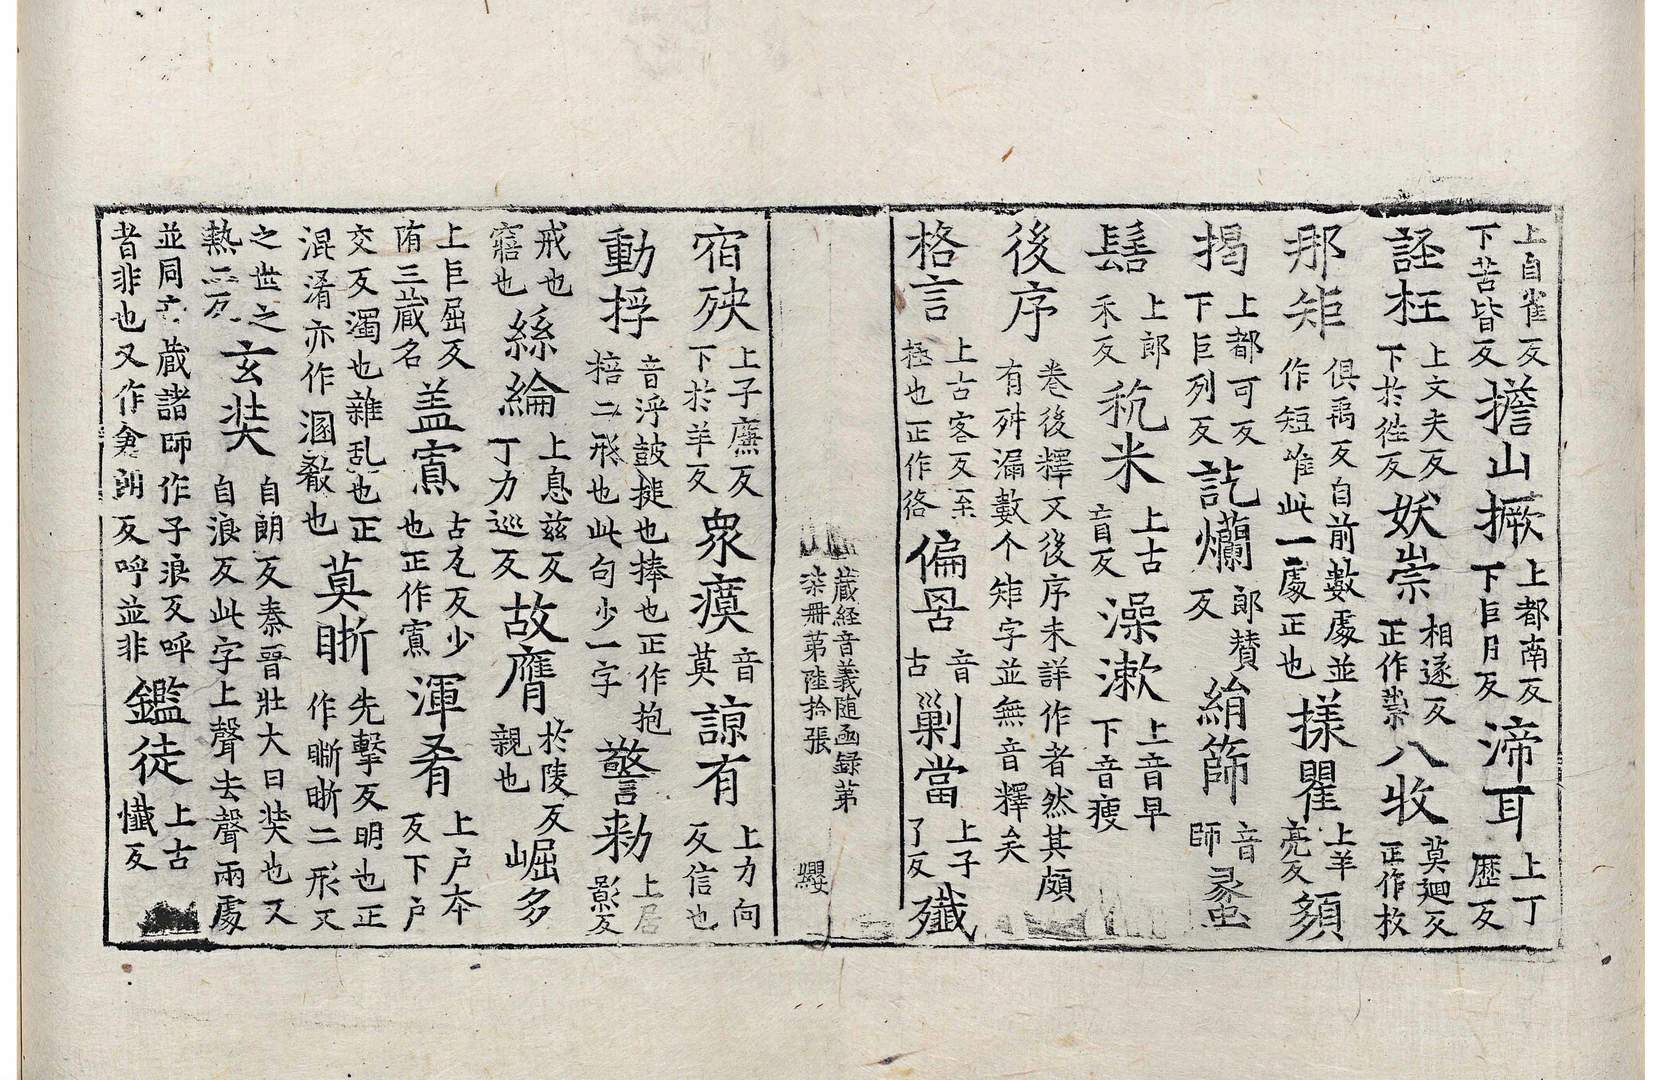 上自雀反下苦皆反擔山撅上都南反下巨月反渧耳上丁歷反
誙枉上文夫反下於往反妖崇相遂反正作祟八收莫迴反正作枚
那矩俱禹反自前數處並作短唯此一處正也㨾瞿上羊亮反頞
揭上都可反下巨列反訖爛郎贊反綃篩音師蟸
髻上郎禾反秔米上古盲反澡漱上音早下音瘦
後序卷後釋又後序未詳作者然其頗有舛漏數个矩字並無音釋矣
格言上古客反至極也正作㣟偏𦊅音古剿當上子了反殲
藏經音義隨函録第柒册第陸拾張 纓
宿殃上子廉反下於羊反衆瘼音莫諒有上力向反信也
動捊音浮鼓搥也捧也正作抱掊二形也此句少一字警勑上居影反
戒也寤也絲綸上息兹反丁力巡反故膺於陵反親也崛多
上巨屈反陏三藏名盖寡古瓦反少也正作寡渾肴上户本反下户
交反濁也雜乱也正混淆亦作溷殽也莫晣先擊反明也正作㫼晰二形又
之世之熱二反玄奘自朗反秦晉壯大曰奘也又自浪反此字上聲去聲兩處
並同六藏諸師作子浪反呼者非也又作倉朗反呼並非鑑徒上古懺反